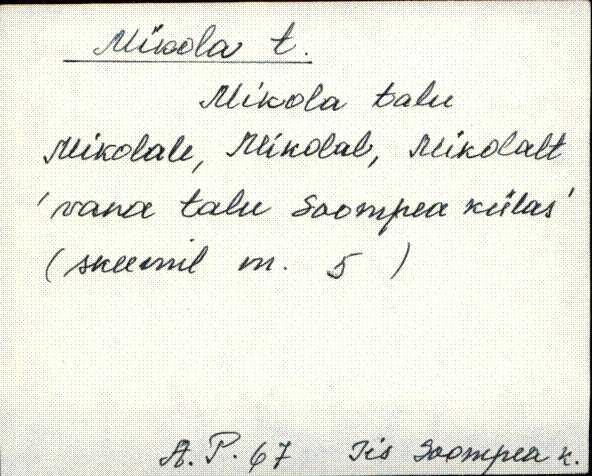 Mikola t.
Mikola talu
Mikolale, Mikolal, Mikolalt
'vana talu Soompea külas'
(skeemil m. 5)
A. P. 67 Iis Soompea k.